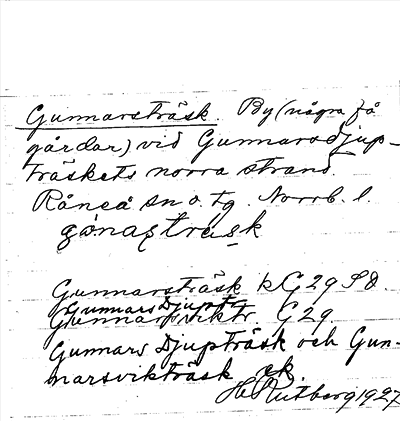 Gunnarsträsk. By (några få
gårdar) vid Gunnarsdjup-
träskets norra strand.
Råneå sn o. tg. Norrb. l.
gònastrask
Gunnarsträsk k G29 SO.
Gunnars Djuptr
Gunnarsviktr. G29
Gunnars Djupträsk och Gun-
narsvikträsk ek
H. Ruthberg 1927